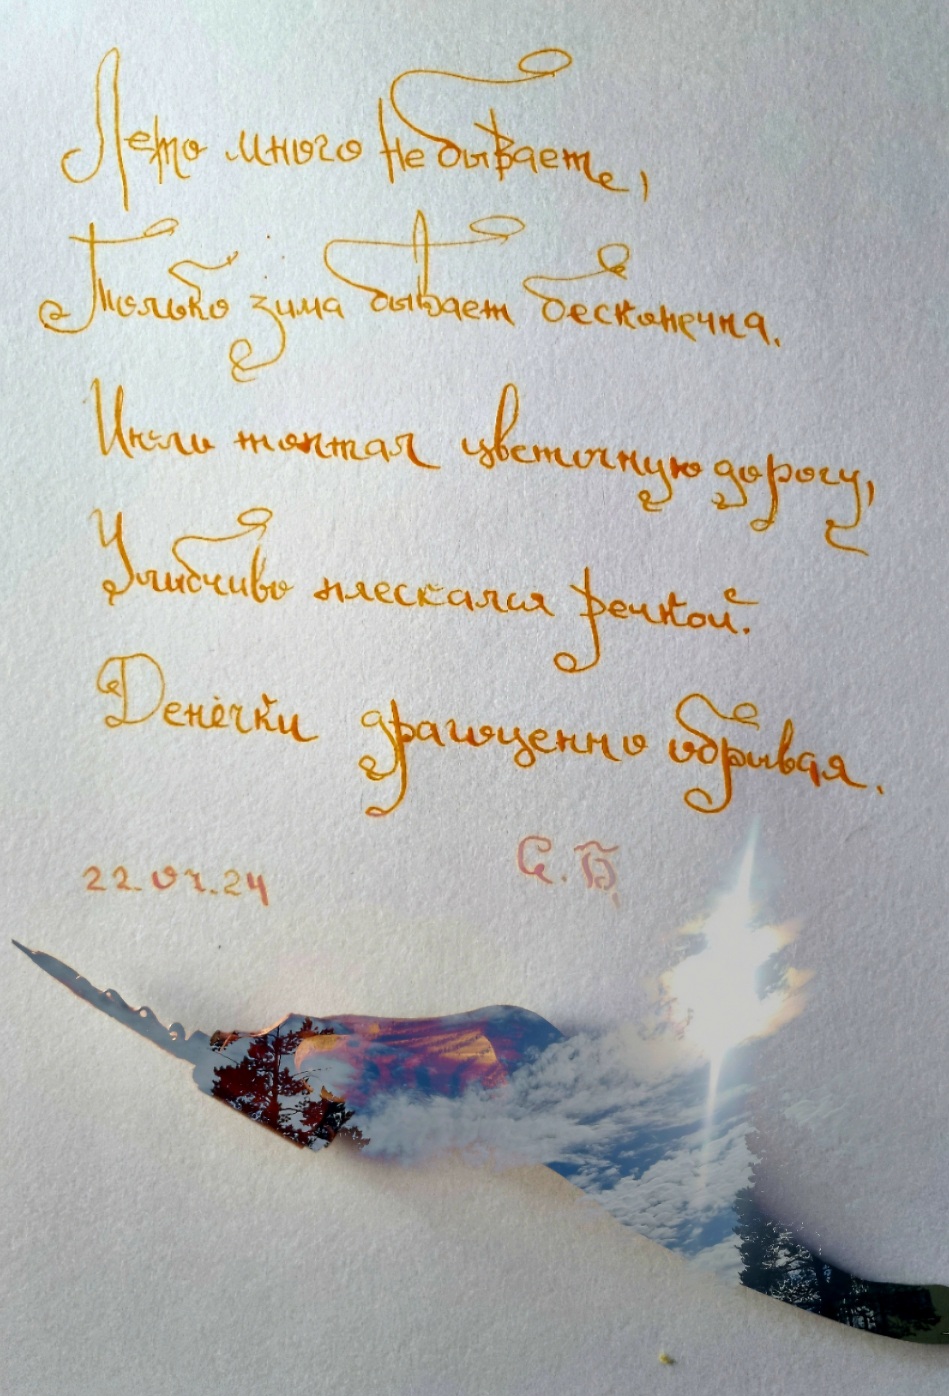 Лето много не бывает,
Только зима бывает бесконечна.
Июль топтал цветочную дорогу,
Улыбчиво плескался речкой.
Денёчки драгоценно обрывая.
22.07.24 С.Б.